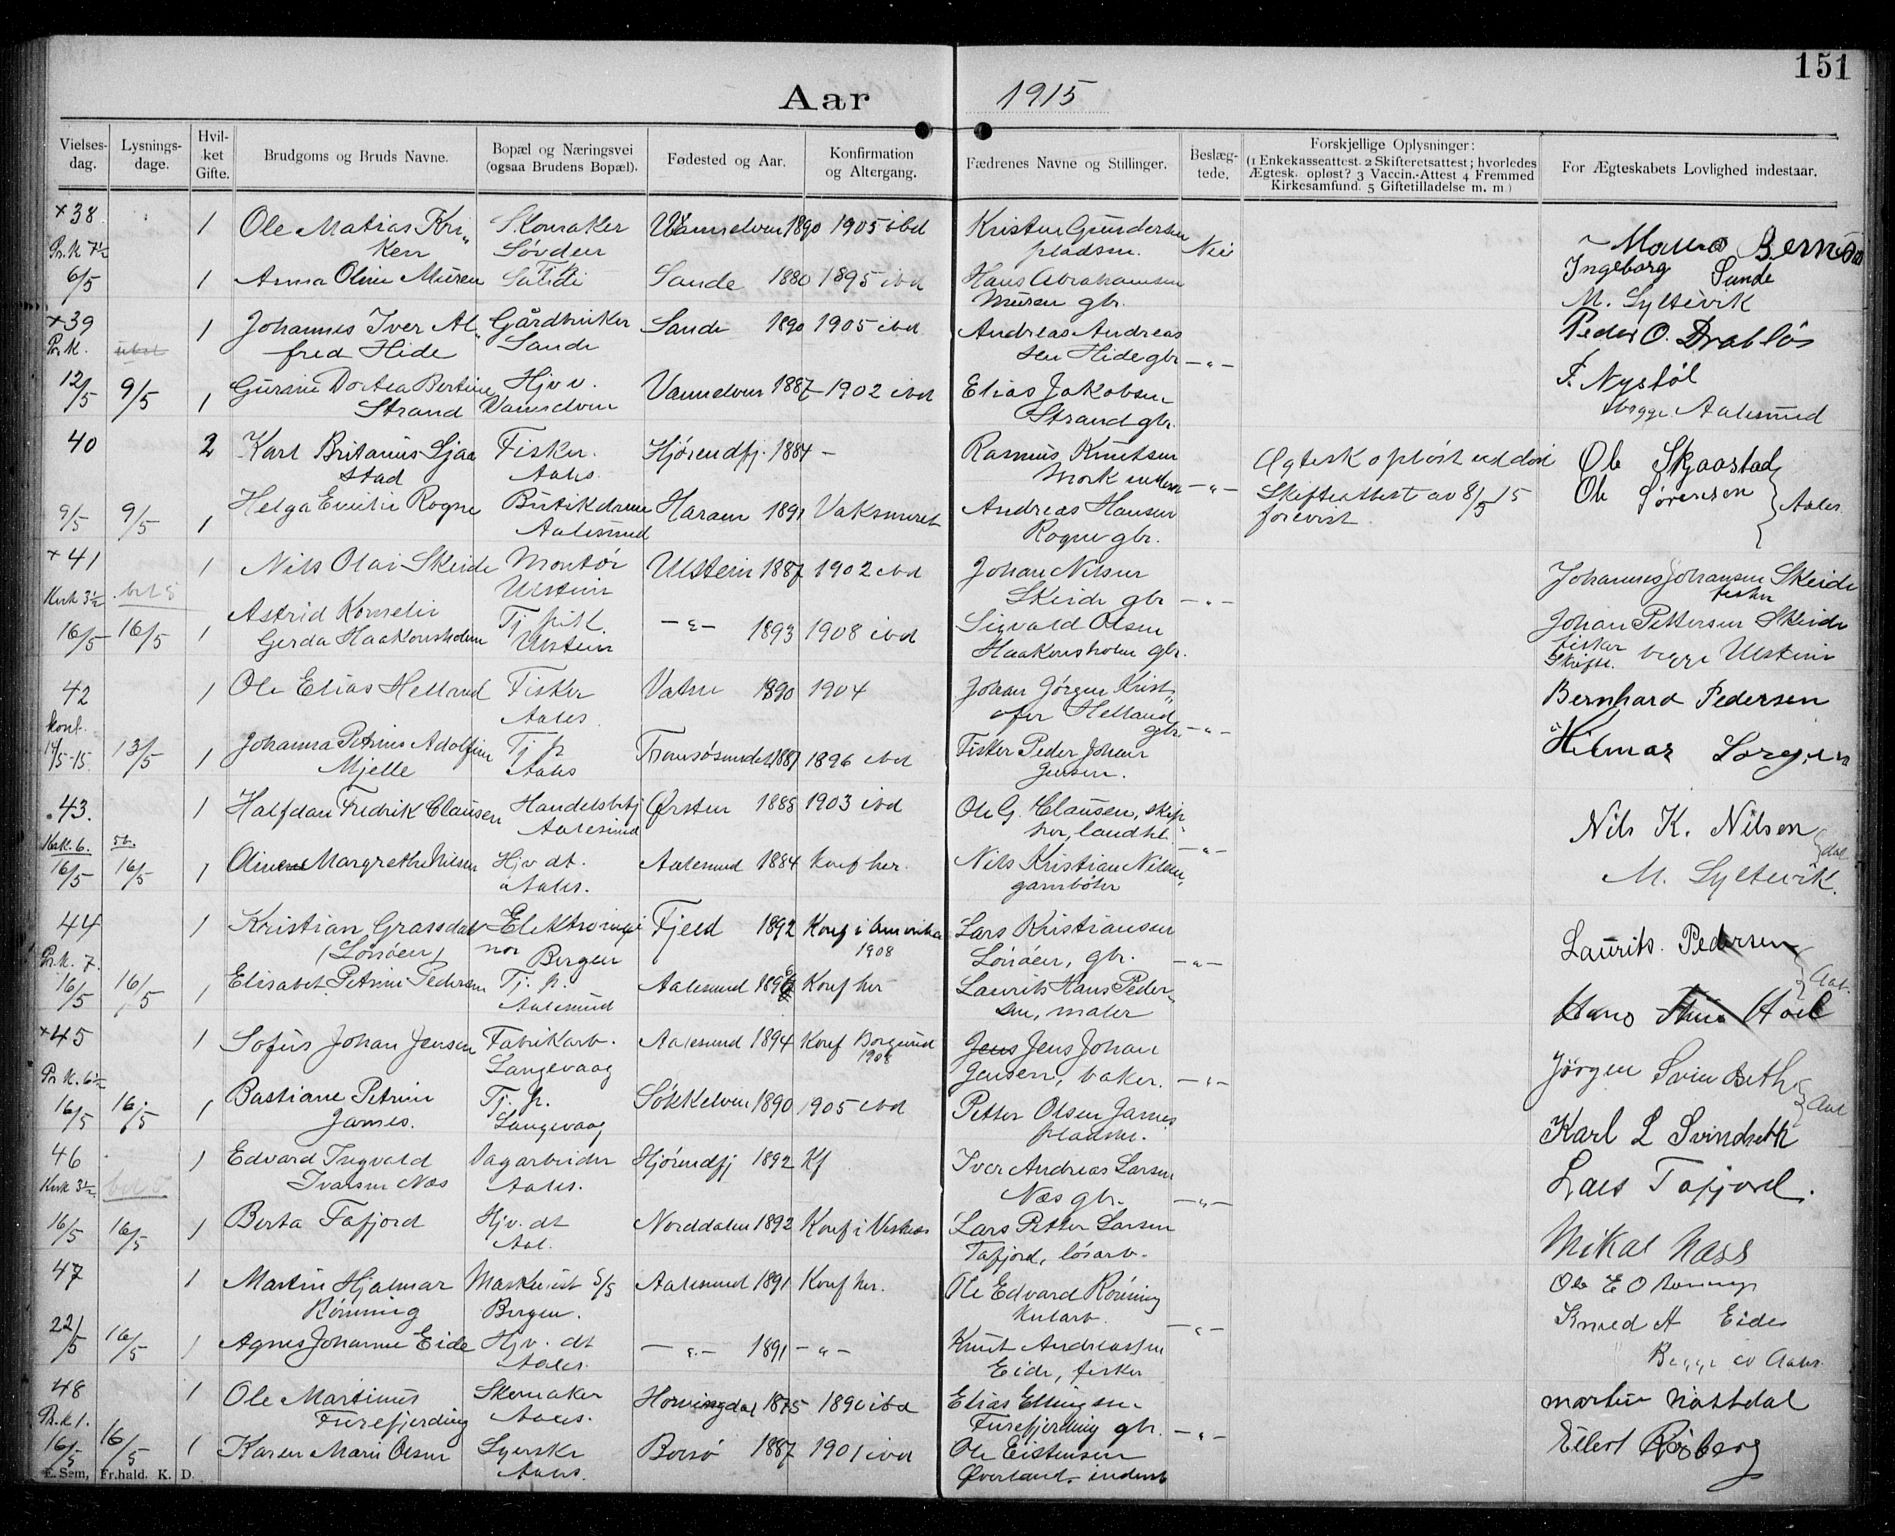 151
Aar 1915
Vielses-dag. Lysnings-dage. Hvil-ket Gifte. Brudgoms og Bruds Navne. Bopæl og Næringsvei (ogsaa Brudens Bopæl). Fødested og Aar. Konfirmation og Altergang. Fædrenes Navne og Stillinger. Beslæg-tede. Forskjellige Oplysninger: (1 Enkekasseattest. 2 Skifteretsattest; hvorledes Ægtesk. opløst? 3 Vaccin.-Attest 4 Fremmed Kirkesamfund. 5 Giftetilladelse m. m) For Ægteskabets Lovlighed indestaar.
×38 1 Ole Matias Kri- Skomaker Vannelven 1890 1905 ibd Kristen Gundersen
Pr. K 7½ ken Søvden pladsm. Nei
6/5 1 Anna Oline Muren Sande Sande 1880 1895 ibd Hans Abrahamsen Ingeborg Sande
Muren gbr. M. Syltevik
×39 1 Johannes Iver Al- Gårdbruker Sande 1890 1905 ibd Andreas Andreas Peder O. Drabløs
Pr. K. fred Hide Sande sen Hide gbr -"-
12/5 9/5 1 Gurine Dortea Bertine Hjv v. Vannelven 1887 1902 ibd Elias Jakobsen F. Nystøl
Strand Vannelven Strand gbr. begge Aalesund
40 2 Karl Britanus Sjaa Fisker. Hjørendfj. 1884 - Rasmus Knutsen Ægtesk opløst ved død Ole Skjaastad
stad Aales. Mork -"- Skifteattest av 8/5 15 Ole Sørensen Aales.
9/5 9/5 1 Helga Emilie Rogne Butikdame Haram 1891 Vaksineret Andreas Hansen forevist.
Aalesund Rogne gbr.
×41 1 Nils Olai Skeide Montør Ulstein 1887 1902 ibd Johan Nilsen Johannes Johansen Skeide
Kirk 3½ Ulstein Skeide gbr -"- fisker
16/5 16/5 1 Astrid Kornelie Tj. pik. -"- 1893 1908 ibd Sigvald Olsen Johan Pettersen Skeide
Gerda Haakonsholm Ulstein Haakonsholm gbr. fisker begge Ulstein
42 1 Ole Elias Helland Fisker Vatne 1890 1904 Johan Jørgen Krist- Bernhard Pedersen
kont. Aales. ofer Helland gbr. -"-
14/5-15 13/5 1 Johanna Petrine Adolfine Tj p Tromsøsundet 1881 1896 ibd Fisker Peder Johan Hilmar
Mjelle Aales Jensen.
43. 1 Halfdan Fredrik Clausen Handelsbetj Ørsten 1885 1903 ibd Ole G. Clausen, skip- Nils K. Nilsen
Kirk. 6. Aalesund per, landh. -"- Aal
16/5 16/5 1 Oline Margrethe Nilsen Hjv dt. Aalesund 1884 konf her. Nils Kristian Nilsen, M. Syltevik.
Aales. garnbøter
44 1 Kristian Grassdal Elektroingi Fjeld 1892 Konf i Amerika Lars Kristiansen Laurits. Pedersen
Pr. K. 7. (Lønøen) nør Bergen 1908 Lønøen, gbr. -"-
16/5 16/5 1 Elisabet Petrine Pedersen Tj. p. Aalesund Konf her Laurits Hans Peder- Aal.
Aalesund sen, maler Hans Høil
×45 1 Sofus Johan Jensen Fabrikarb. Aalesund 1894 Konf Borgund 1908 Jens Jens Johan
Pr K. 6½ Langevaag Jensen, baker. -"- Jørgen Svindseth
16/5 16/5 1 Bastiane Petrine Tj. p. Søkkelven 1890 1905 ibd Petter Olsen James Aal
James. Langevaag pladsm. Karl L Svindseth
46 1 Edvard Ingvald Dagarbeider Hjørendfj 1892 Kf Iver Andreas Larsen Lars Tafjord.
Kirk 3½ Ivarsen Næs Aales. Næs gbr. -"-
16/5 16/5 1 Berta Tafjord Hjv. dt Norddalen 1892 Konf i Vestnes Lars Petter Larsen Mikal Næss
Aal. Tafjord, løsarb.
47 1 Martin Hjalmar Maskinist Aalesund 1891 Konf her. Ole Edvard Rønning Ole E O Rønning
Rønning Bergen. kularb. -"-
22/5 16/5 1 Agnes Johanne Eide Hjv. dt -"- 1891 -"- Knut Andreassen Knud A Eide
Aales. Eide, fisker Begge av Aales.
48 1 Ole Martinus Skomaker Horningdal 1875 1890 ibd Elias Ellingsen Martin Nattdal
Pr. K 1. Furefjerding Aales. Furefjerding gbr. -"-
16/5 16/5 1 Karen Marie Olsen Syerske Borsø 1887 1901 ibd Ole Eistensen Eilert
Aales. Øverland inderst
E. Sem, Fr.hald. K. D.